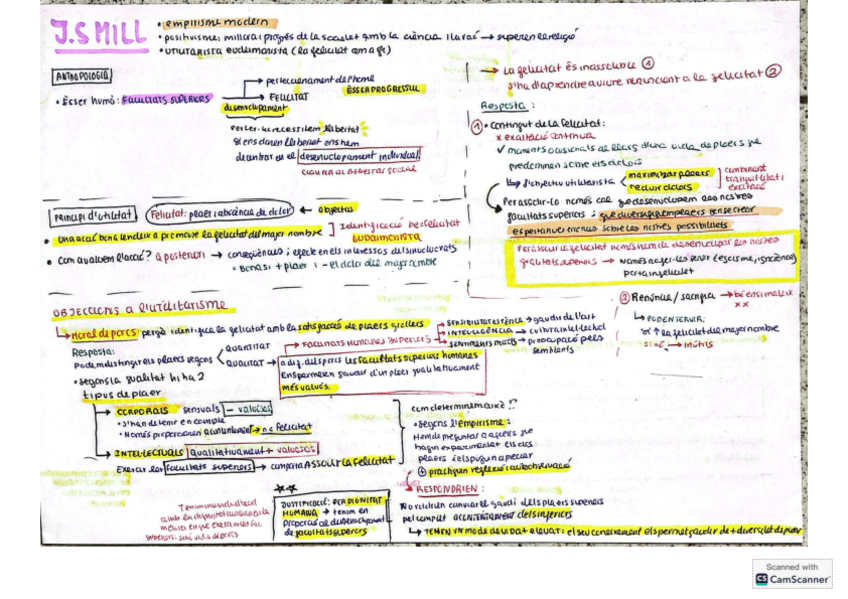 J.S MILL
• empirisme modern
• positivisme: millora i progrés de la societat amb la ciència i la raó → superen la religió
• UTILITARISTA eudaimonista (la felicitat com a fi)
ANTROPOLOGIA
• Ésser humà: FACULTATS SUPERIORS
→ perfeccionament de l'home
→ FELICITAT
ÉSSER PROGRESSIU
desenvolupament
Per fer-ho necessitem llibertat
Si ens donen llibertat ens hem
de centrar en el desenvolupament individual
→ La felicitat és inassolible ①
S'ha d'aprendre a viure renunciant a la felicitat ②
Resposta:
① • Contingut de la felicitat:
x exaltació contínua
✓ moments ocasionals al llarg d'una vida de plaers que
predominen sobre els dolors
↳ L'objectiu utilitarista
maximitzar plaers
reduir dolors
combinant
tranquil·litat i
excitació
Per assolir-lo només cal que desenvolupem les nostres
facultats superiors i que diversifiquem plaers sense crear
expectatives errònies sobre les nostres possibilitats
Per assolir la felicitat només hem de desenvolupar les nostres
facultats superiors → Només no fer-les servir (egoisme, ignorància)
porta infelicitat
② Renúncia / sacrifici → bé en si mateix
x x
↳ PODEN SERVIR:
si ↑ la felicitat del major nombre
si no → inútils
PRINCIPI D'UTILITAT
Felicitat: plaer i absència de dolor ← objectius
• Una acció bona tendeix a promoure la felicitat del major nombre
] Identificació bé-felicitat
EUDAIMONISTA
• Com avaluem l'acció? A posteriori → conseqüències i efecte en els interessos dels involucrats
• Bona si + plaer i - el dolor del major nombre
OBJECCIONS A L'UTILITARISME
↳ Moral de porcs perquè identifica la felicitat amb la satisfacció de plaers grollers
Resposta:
Podem distingir els plaers segons
QUANTITAT
QUALITAT →
→ FACULTATS HUMANES SUPERIORS
→ SENSIBILITAT ESTÈTICA → gaudi de l'art
→ INTEL·LIGÈNCIA → cultura intel·lectual
→ SENTIMENTS MORALS → preocupació pels
semblants
a dig. dels porcs les facultats superiors humanes
Ens permeten gaudir d'un plaer qualitativament
més valuós.
• Segons la qualitat hi ha 2
tipus de plaer
→ CORPORALS sensuals - valuosos
• S'han de tenir en compte
• Només proporcionen acontentament → no felicitat
→ INTEL·LECTUALS Qualitativament + valuosos
Exercir les facultats superiors → comporta ASSOLIR LA FELICITAT
Com determinem això ⁉
• Segons l'empirisme:
Hem de preguntar a aquells que
hagin experimentat els dos
plaers i els puguin apreciar
⊕ practiquen reflexió i autoobservació
↳ RESPONDRIEN:
No voldrien canviar el gaudi dels plaers superiors
pel complet ACONTENTAMENT dels inferiors
↳ TENEN UN MODE DE VIDA + ELEVAT: el seu coneixement els permet gaudir de + diversitat de plaers
JUSTIFICACIÓ: PER DIGNITAT
HUMANA → tenim en
proporció al desenvolupament
de facultats superiors
Scanned with
CS CamScanner